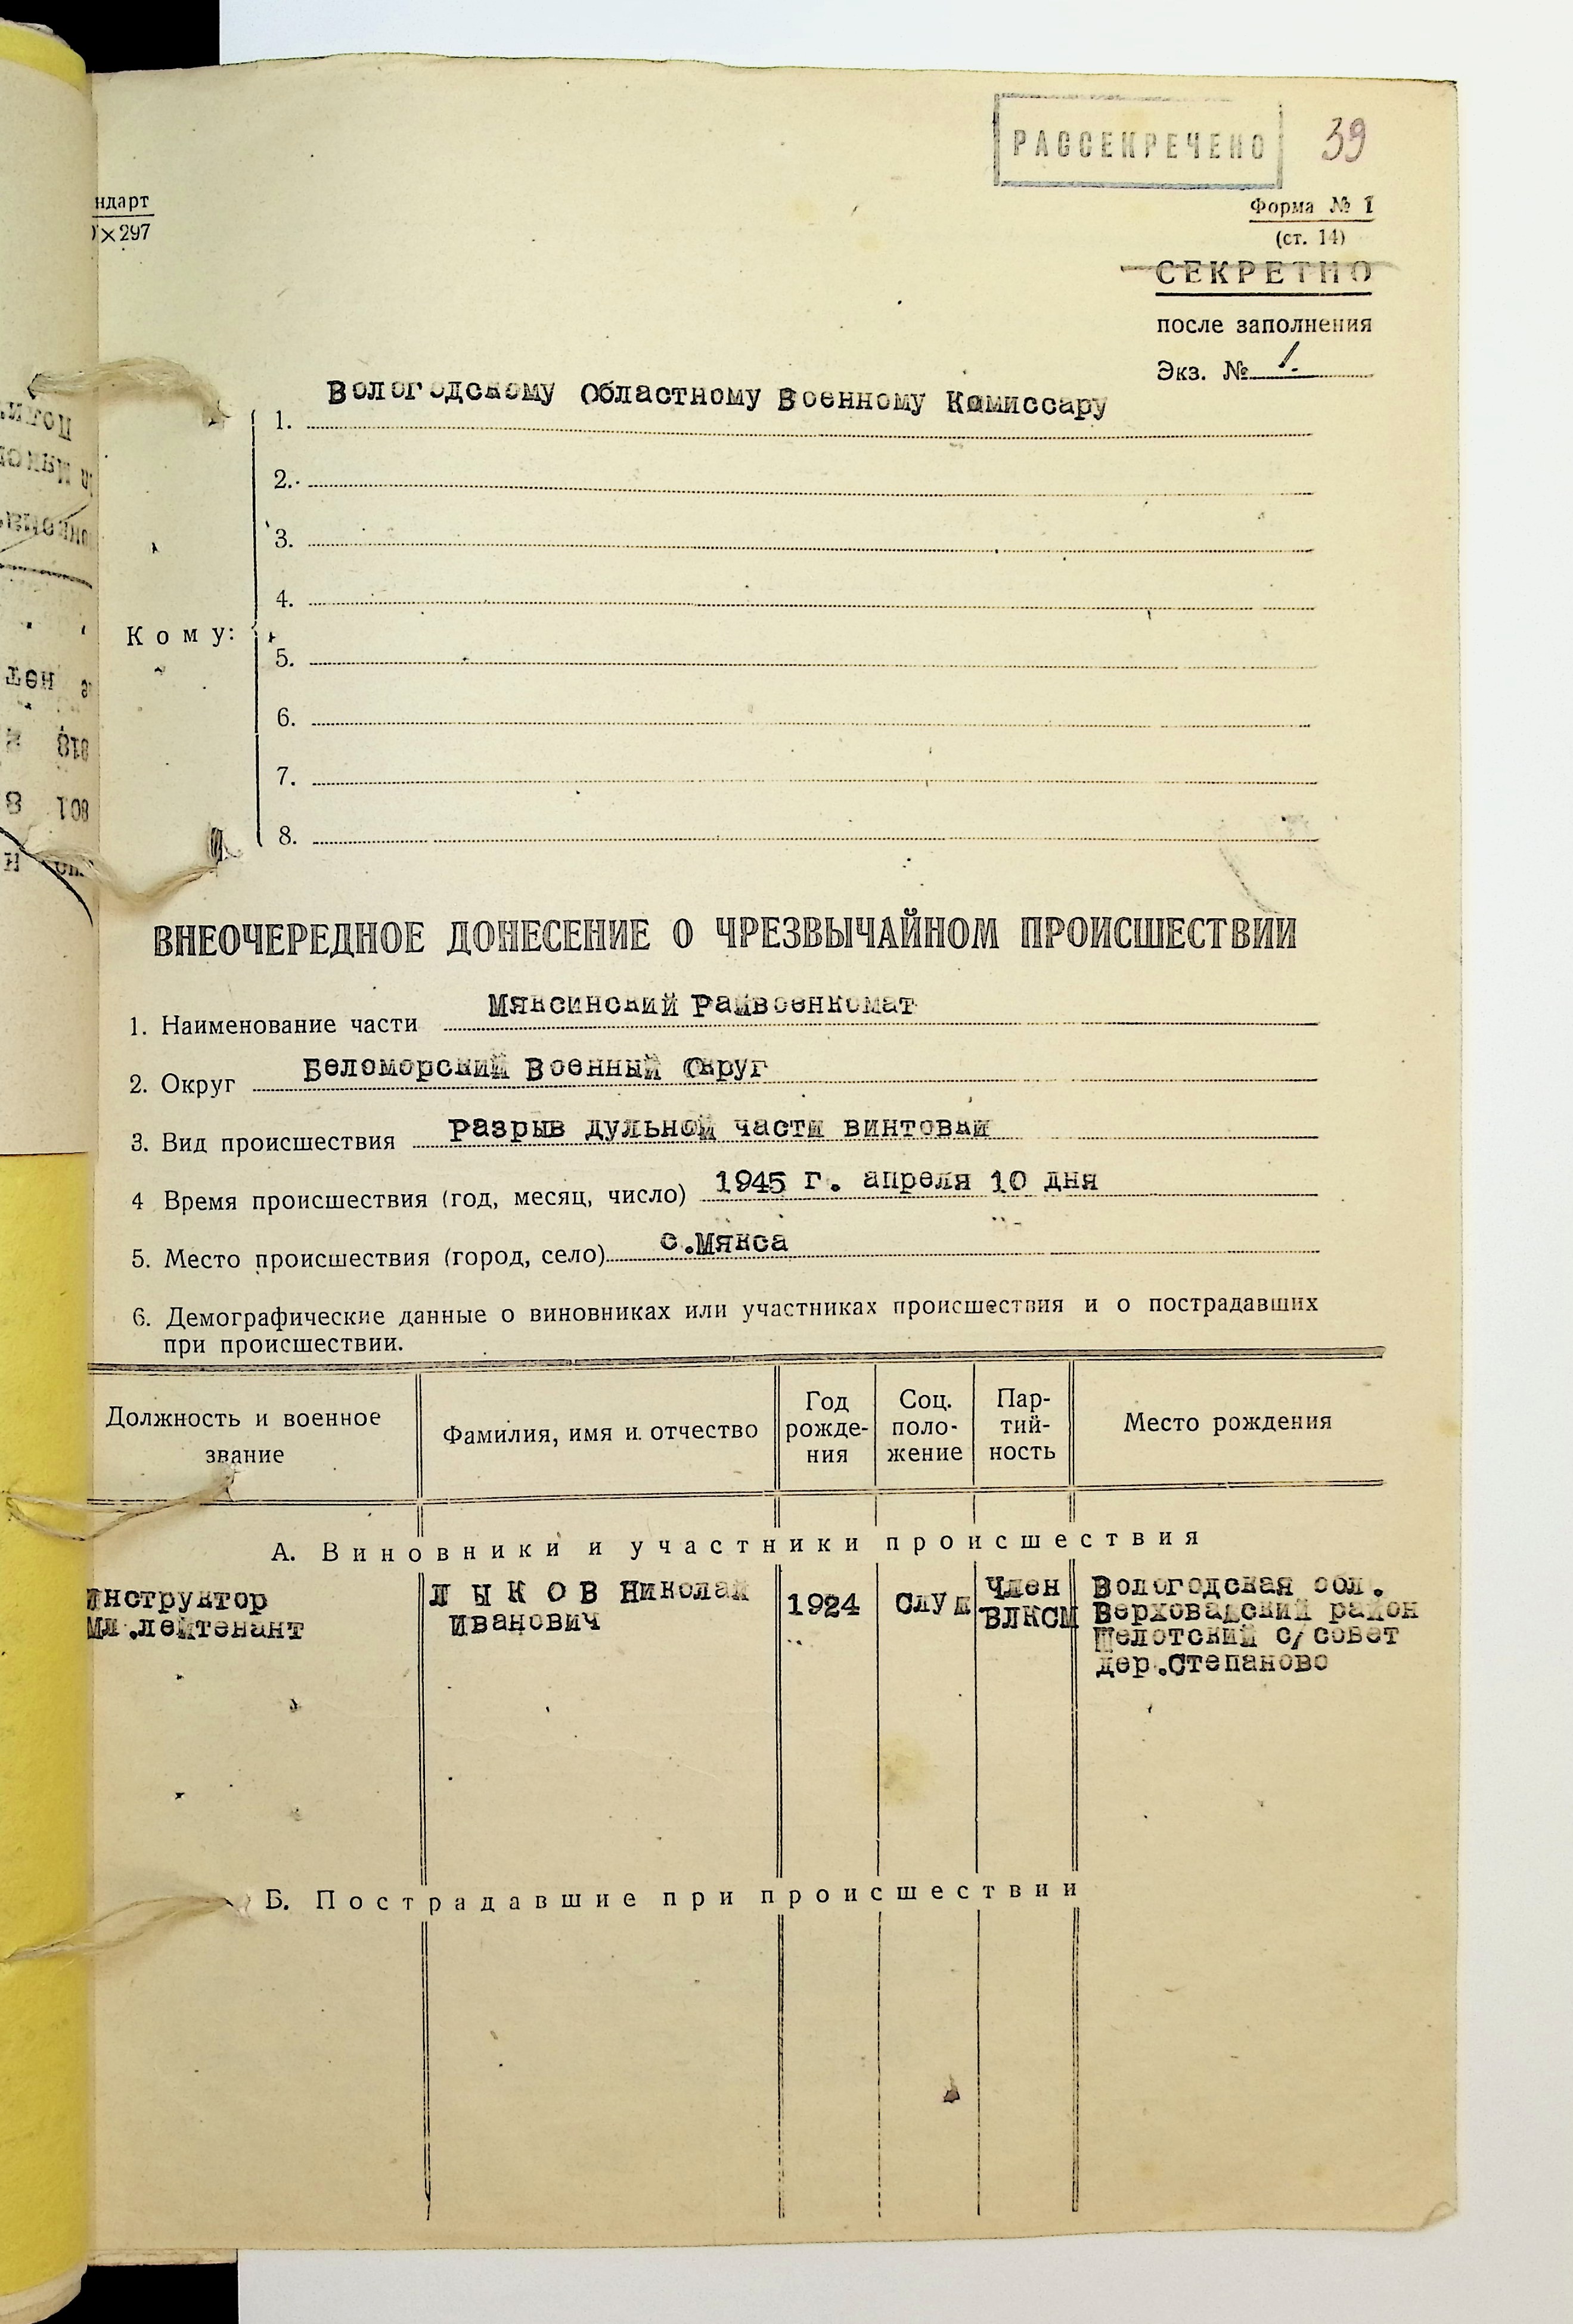 РАССЕКРЕЧЕНО 39
ндарт
×297
Форма № 1
(ст. 14)
СЕКРЕТНО
после заполнения
Экз. № 1.
Вологодскому Областному Военному Комиссару
1.
2.
3.
4.
Кому:
5.
6.
7.
8.
ВНЕОЧЕРЕДНОЕ ДОНЕСЕНИЕ О ЧРЕЗВЫЧАЙНОМ ПРОИСШЕСТВИИ
1. Наименование части Мяксинский Райвоенкомат
2. Округ Беломорский Военный Округ
3. Вид происшествия Разрыв дульной части винтовки
4 Время происшествия (год, месяц, число) 1945 г. апреля 10 дня
5. Место происшествия (город, село) с.Мякса
6. Демографические данные о виновниках или участниках происшествия и о пострадавших
при происшествии.
Должность и военное
звание
Фамилия, имя и отчество
Год
рожде-
ния
Соц.
поло-
жение
Пар-
тий-
ность
Место рождения
А. Виновники и участники происшествия
Инструктор
Мл.лейтенант
ЛЫКОВ Николай
Иванович
1924
служ
Член
ВЛКСМ
Вологодская обл.
Верховажский район
Шелотский с/совет
дер.Степаново
Б. Пострадавшие при происшествии